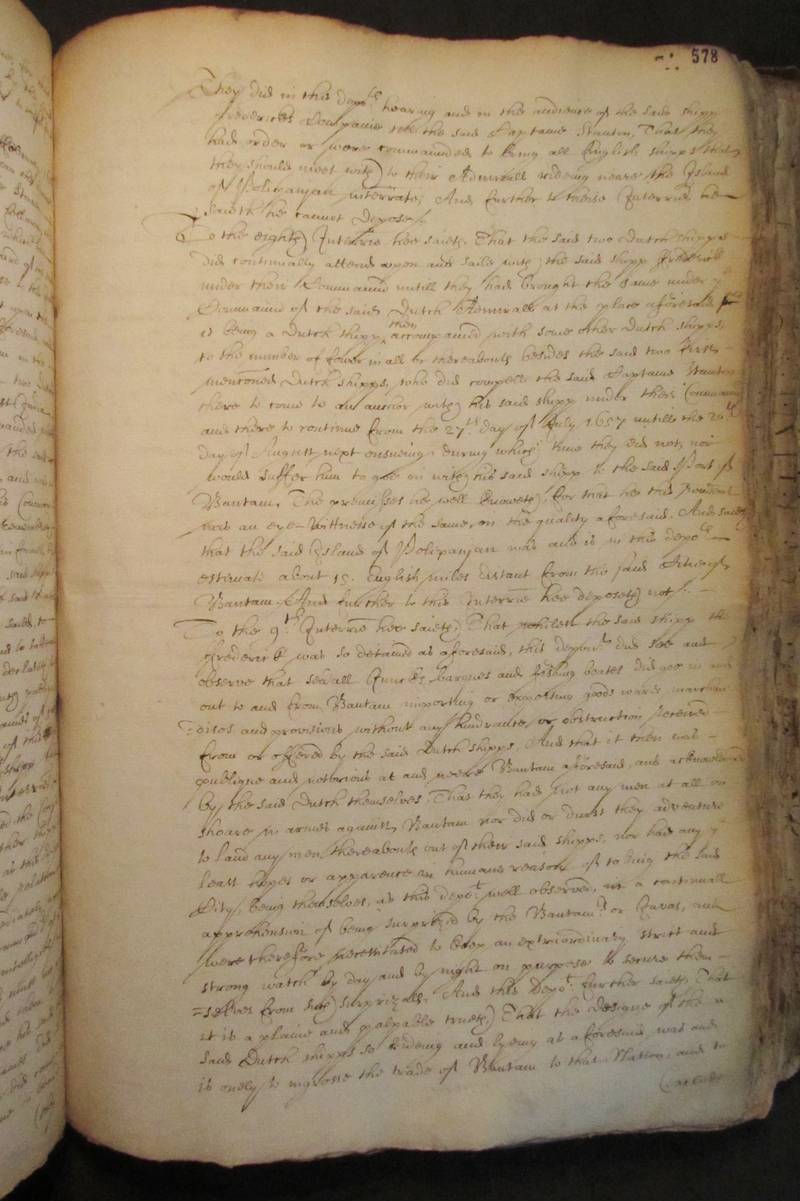 578
They did in this depo:ts hearing and in the audience of the said shipp
Fredericks Companie tell the said Captaine Stanton, That they
had order or were commaunded to bring all English shipps that
they should meet with to their Admirall rideing neere the Island
of Polipanjan interrate, And further to theise Interries hee
saieth he cannot depose./
To the eighth Interrie hee saieth, That the said two Dutch shipps
did continually attend upon and saile with the said shipp Frederick
under their Command untill they had brought the same under ye
Command of the said Dutch Admirall at the place aforesaid
is being a Dutch shipp, then accompanied with some other Dutch shipps
to the number of fower in all or thereabouts besides the said two first
mentioned Dutch shipps, who did compell the said Captaine Stanton
there to come to an anchor with his said shipp under their Command
and there to continue from the 27th day of July 1657 untill the 20th
day of August next ensueing, dureing which time they did not, nor
would suffer him to goe in with his said shipp to the said Port of
Bantam, The premisses he well knoweth for that he this Rendent
was an eye-wittnesse of the same, on the quality aforesaid. And saith
that the said Island of Polipanjan was and is in this depo:ts
estimate about 15. English miles distant from the said
Bantam. And further to this Interrie hee deposeth not./
To the 9th Interrie hee saieth, That whilest the said shipp the
Frederick was so detained as aforesaid, this depon:t did see and
observe that severall Juncks, barques and fishing boates did goe in and
out to and from Bantam importing or exporting goods wares marchan-
dizes and provisions without any hindrance, or obstruction received
from or offered by the said Dutch shipps, And that it then was
publique and notorious at and neere Bantam aforesaid, and acknowledged
by the said Dutch themselves, That they had not any men at all on
shoare in armes against Bantam nor did or durst they adventure
to land any men thereabouts out of their said shipps, nor had any ye
least hopes or apparence in humane reason of takeing the said
City, being themselves, as this depo:t well observed, in a continuall
apprehension of being surprized by the Bantam:rs or Javas, and
were therefore necessitated to keep an extriordinary strict and
strong watch by day and by night on purpose to secure them-
=selves from such surprizall, And this Depo:t further saieth That
it is a plaine and palpable trueth, That the designe of the
said Dutch shipps so rideing and lyeing as aforesaid was and
is onely to ingrosse the trade of Bantam to that Nation, and to